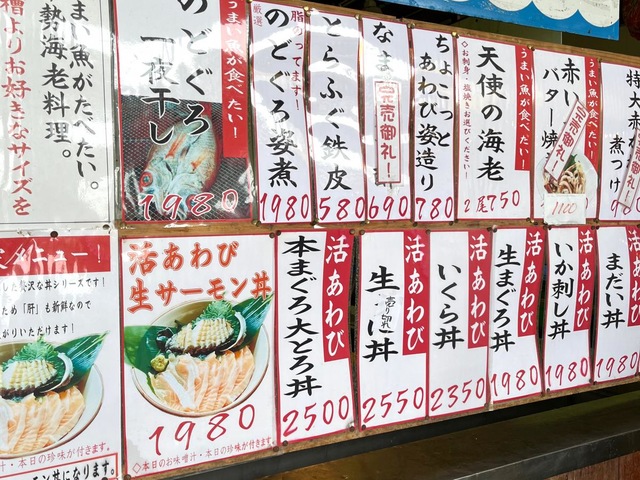 まい魚がたべたい。
勢海老料理。
槽よりお好きなサイズを
うまい魚が食べたい!
のどぐろ
一夜干し
1980
厳選
脂のってます!
のどぐろ姿煮
1980
とらふぐ鉄皮
580
なま
完売御礼!
690
ちょこっと
あわび姿造り
780
うまい魚が食べたい!
天使の海老
◇お刺身・塩焼きお選びください
2尾750
うまい魚が食べたい!
赤い
バター焼
完売御礼!
1100
特大赤
煮つけ
980
メニュー!
した贅沢な丼シリーズです!
ため「肝」も新鮮なので
がりいただけます!
汁・本日の珍味が付きます。
ーモン丼になります。
活あわび
生サーモン丼
1980
◇本日のお味噌汁・本日の珍味が付きます
活あわび
本まぐろ大とろ丼
2500
活あわび
生
売り切れ
に丼
2550
活あわび
いくら丼
2350
活あわび
生まぐろ丼
1980
活あわび
いか刺し丼
1980
活あわび
まだい丼
1980